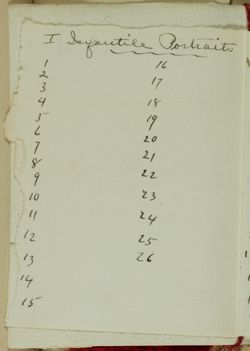 I Infantile Portraits
1 16
2 17
3 18
4 19
5 20
6 21
7 22
8 23
9 24
10 25
11 26
12
13
14
15